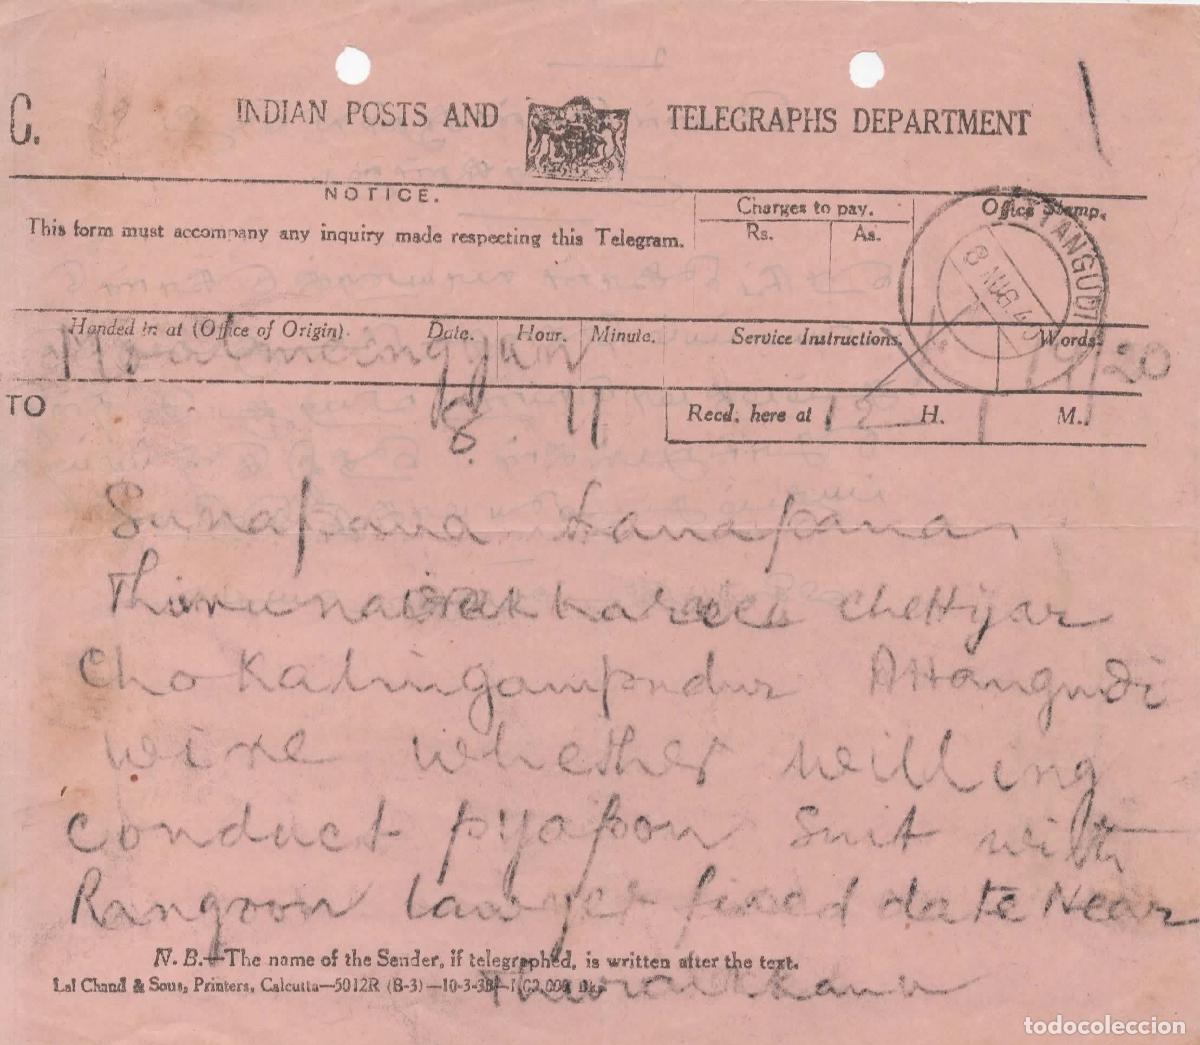 C. INDIAN POSTS AND TELEGRAPHS DEPARTMENT
NOTICE.
This form must accompany any inquiry made respecting this Telegram.
Charges to pay.
Rs. As.
Office Stamp.
ATTANGUDI
8 AUG 40
Handed in at (Office of Origin). Date. Hour. Minute. Service Instructions. Words.
Moulmeingyun 20
8 11
TO
Recd. here at 12 H. M.
Sunapana Hanapana
Chettiyar
Chokalingampudur Attangudi
wire whether willing
conduct pyapon suit with
Rangoon lawyer fixed date Near
N. B.—The name of the Sender, if telegraphed, is written after the text.
Lal Chand & Sons, Printers, Calcutta—5012R (B-3)—10-3-38
todocoleccion